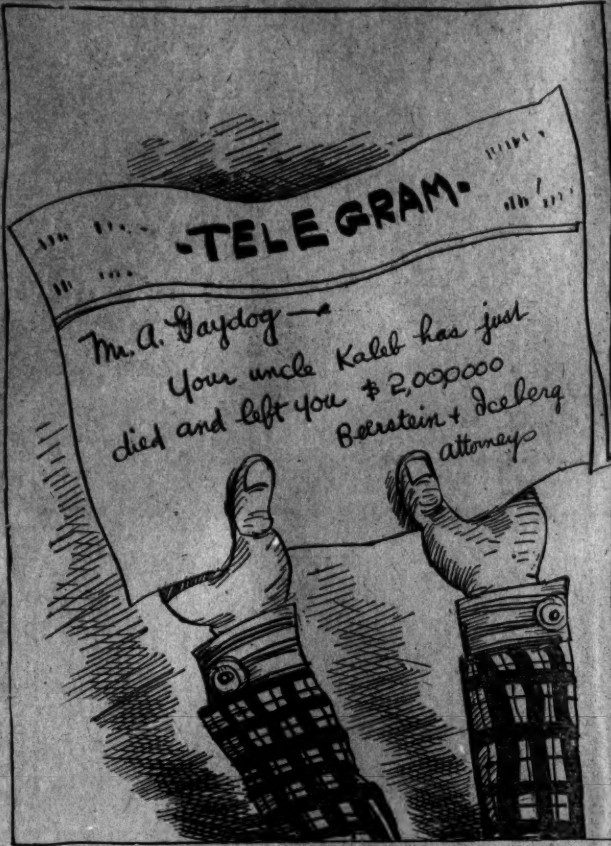 -TELEGRAM-
Mr. A. Gaydog —
Your uncle Kaleb has just
died and left you $2,000000
Beerstein + Iceberg
attorneys